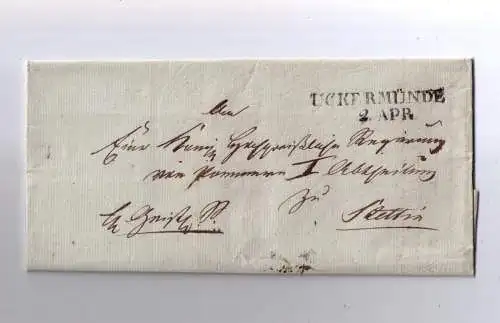 UCKERMÜNDE
2. APR.
An
Eine König Hochpreißliche Regierung
von Pommern I Abtheilung
zu
Stettin